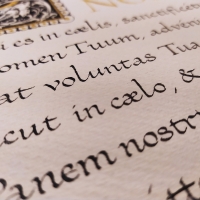 es in cælis, sanctifice
omen Tuum, adveni
at voluntas Tua
icut in cælo, &
Panem nostru